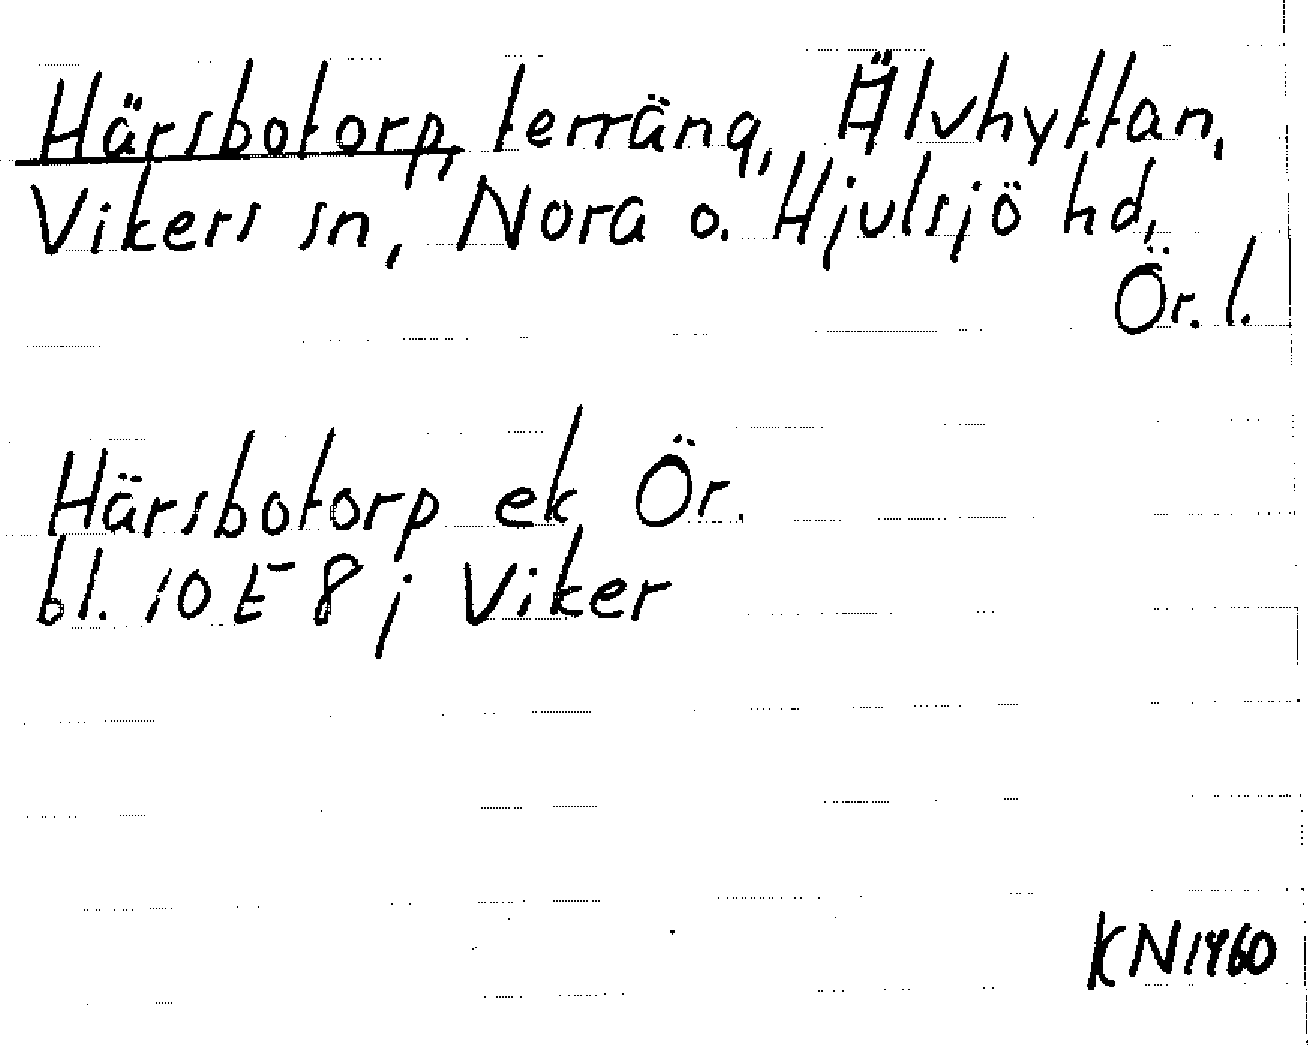 Härsbotorp, terräng, Älvhyttan,
Vikers sn, Nora o. Hjulsjö hd,
Ör. l.
Härsbotorp ek Ör.
bl. 10 E 8 j Viker
KN 1960